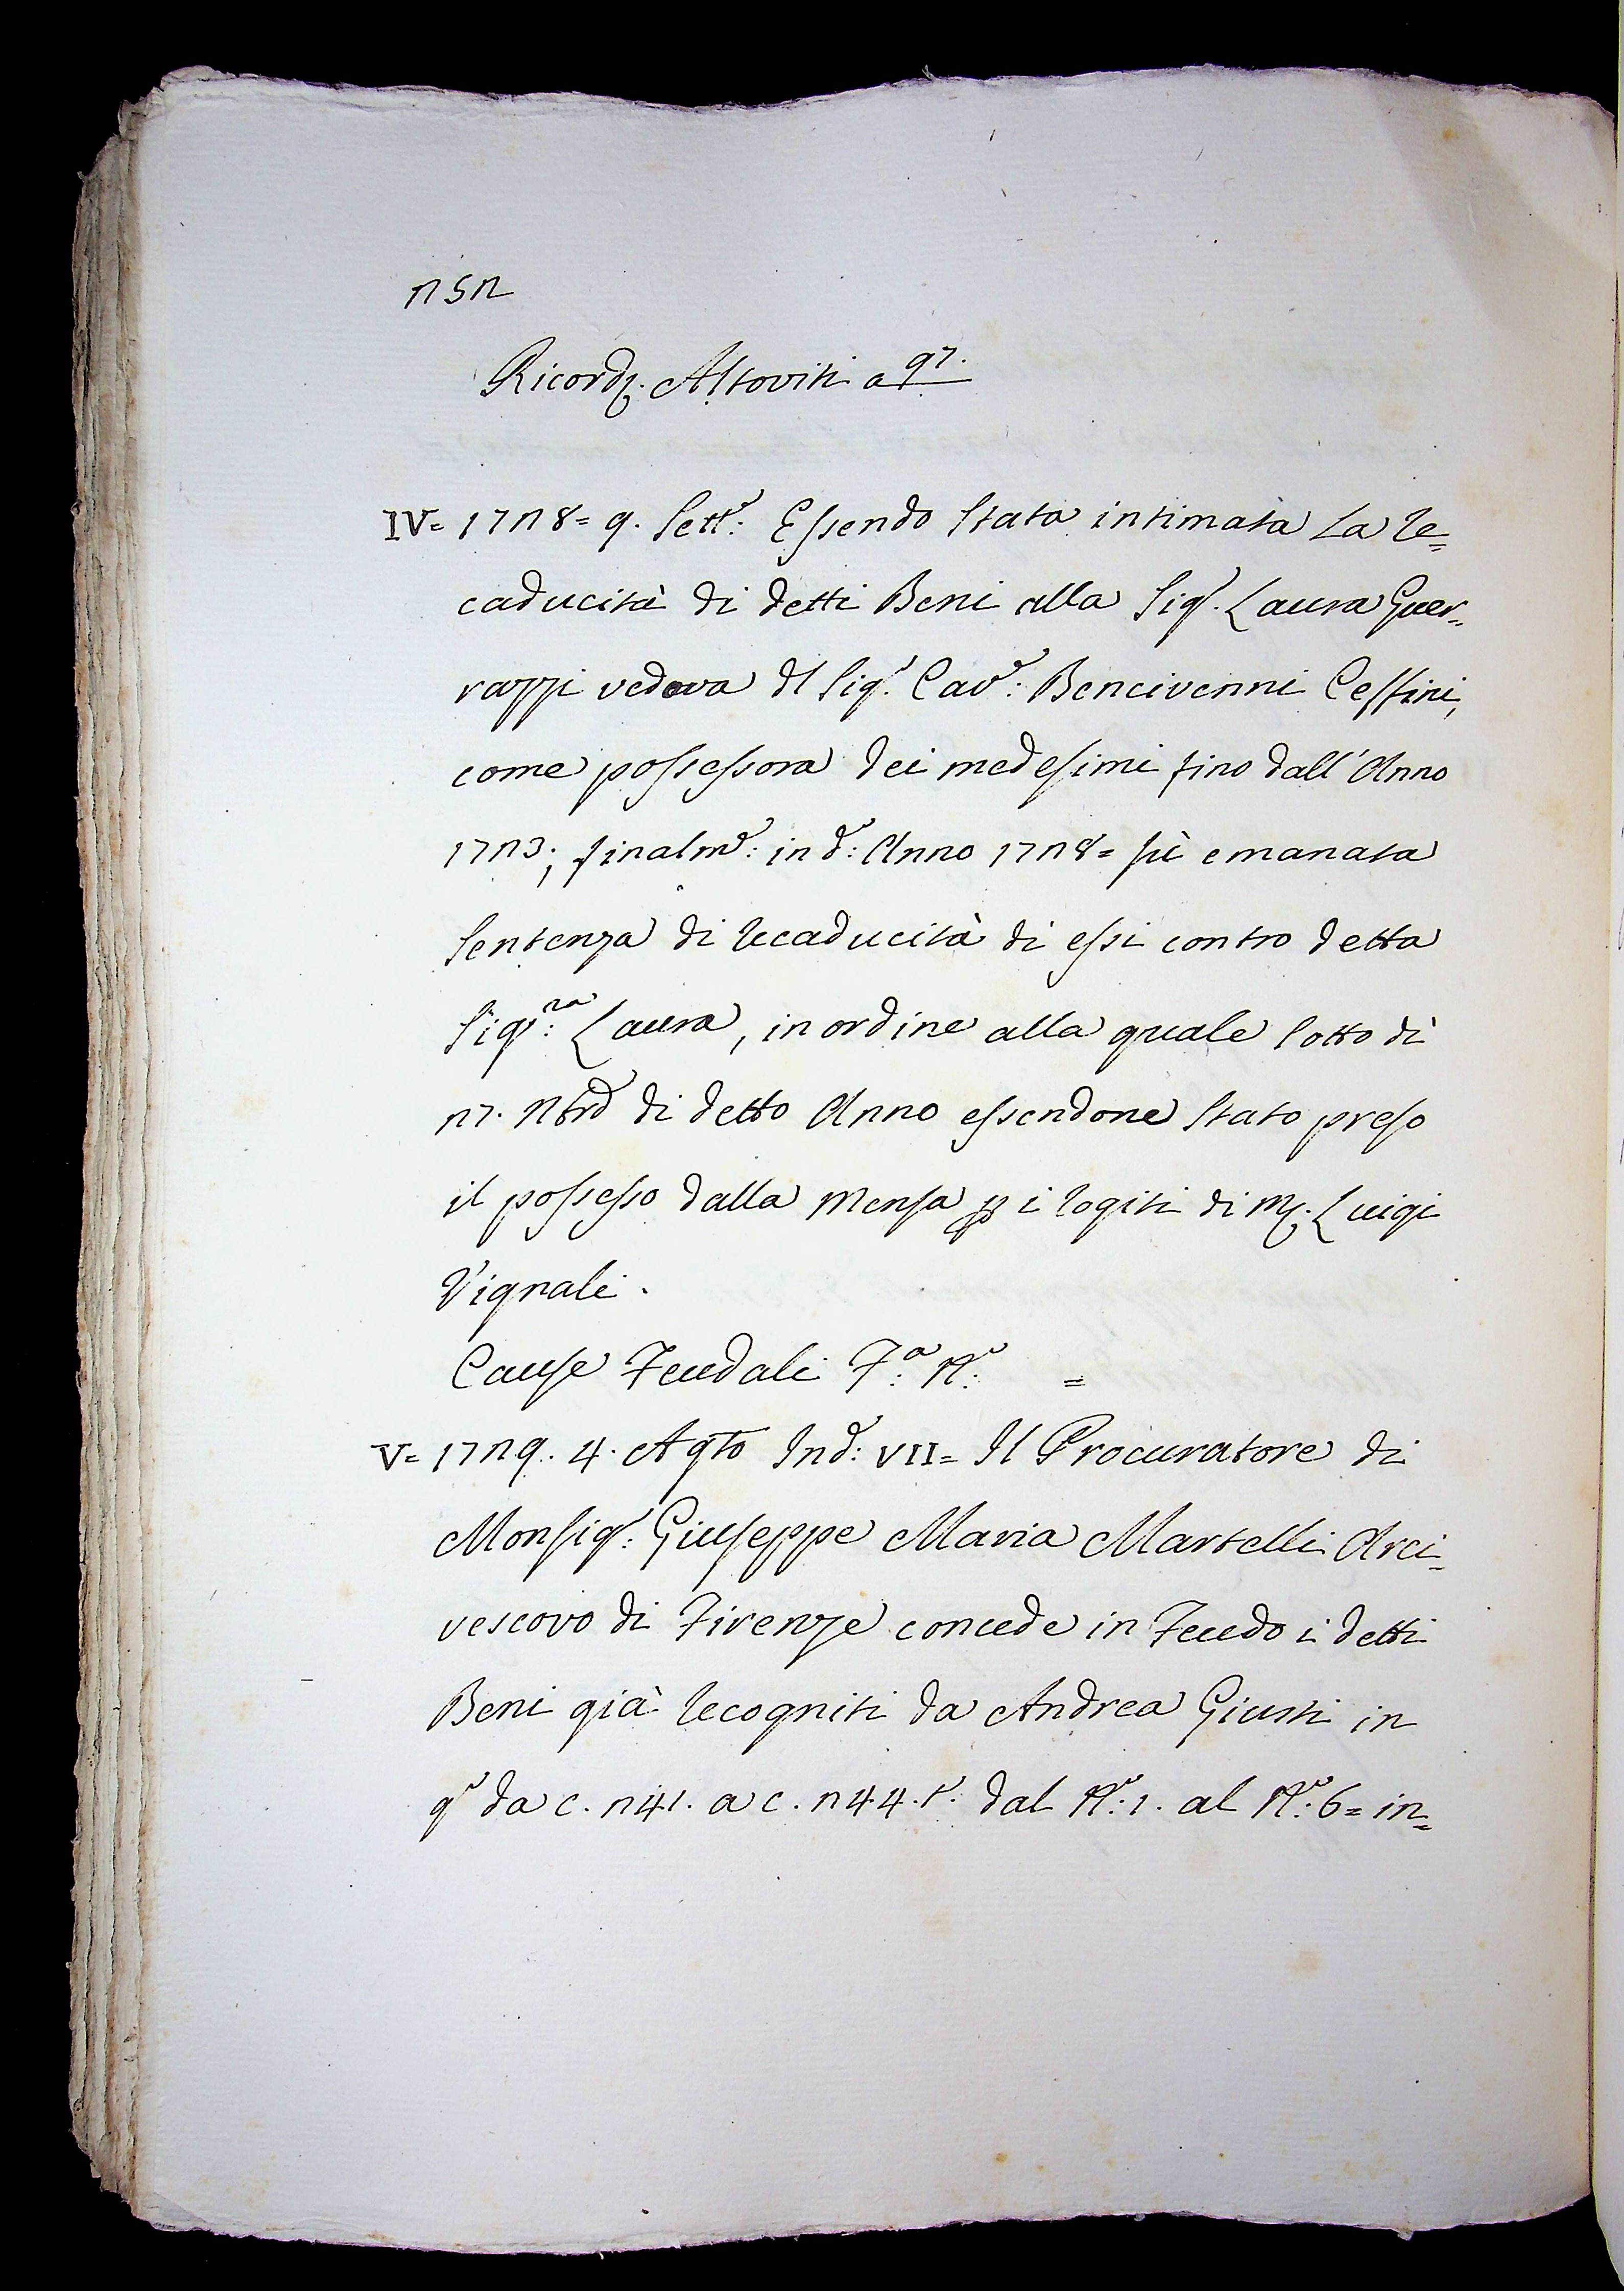 252
Ricord. Altoviti a 97.
IV= 1728= 9. Sett.e: Essendo Stata intimata La Re=
caducità di detti Beni alla Sig.a Laura Guer=
razzi vedova dl Sig.r Cav.e: Bencivenni Ceffini,
come possessora dei medesimi fino dall'Anno
1723; finalm.e: in d.o: Anno 1728= fù emanata
Sentenza di Recaducità di essi contro detta
Sig.ra: Laura, in ordine alla quale Sotto dì
27. Nbre di detto Anno essendone Stato preso
il possesso dalla Mensa p i rogiti di M. Luigi
Vignali.
Cause Feudali F.a: N.o: =
V= 1729. 4. Agto Ind.e: VII= Il Procuratore di
Monsig.r: Giuseppe Maria Martelli Arci=
vescovo di Firenze concede in Feudo i detti
Beni già Recogniti da Andrea Giusti in
q.o da c. 241. a c. 244.t. dal N.o: 1. al N.o: 6= in=